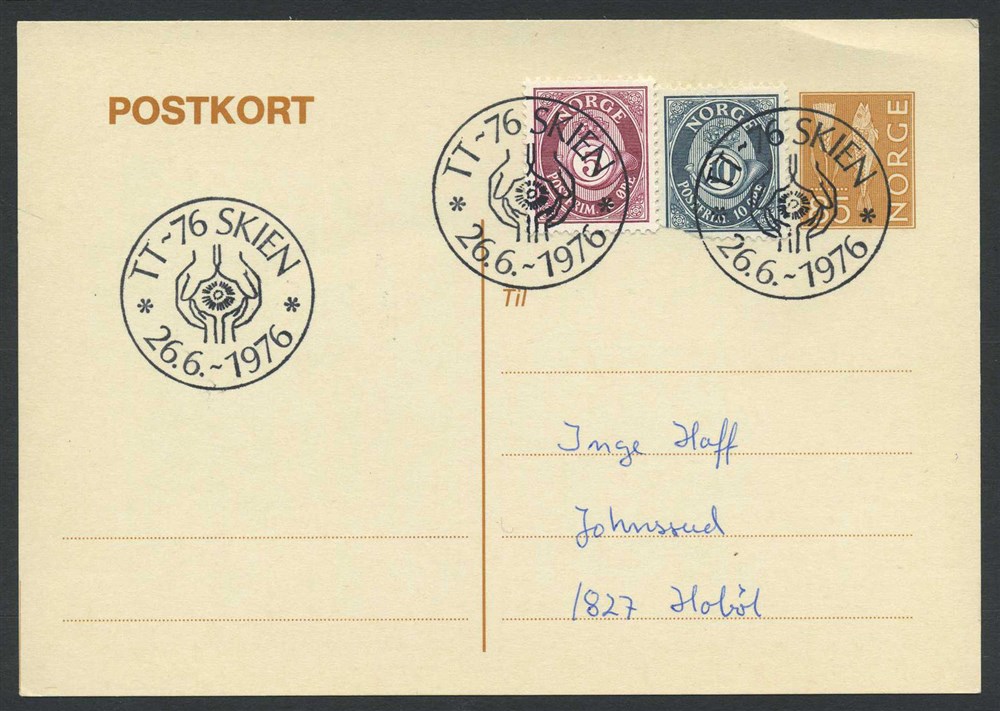 POSTKORT
NORGE
5
POSTFRIM. ØRE
NORGE
10
POSTFRIM. 10 ØRE
NORGE
TT~76 SKIEN
* *
26.6.~1976
TT~76 SKIEN
*
26.6.~1976
TT~76 SKIEN
* *
26.6.~1976
Til
Inge Haff
Johnsrud
1827 Hobøl